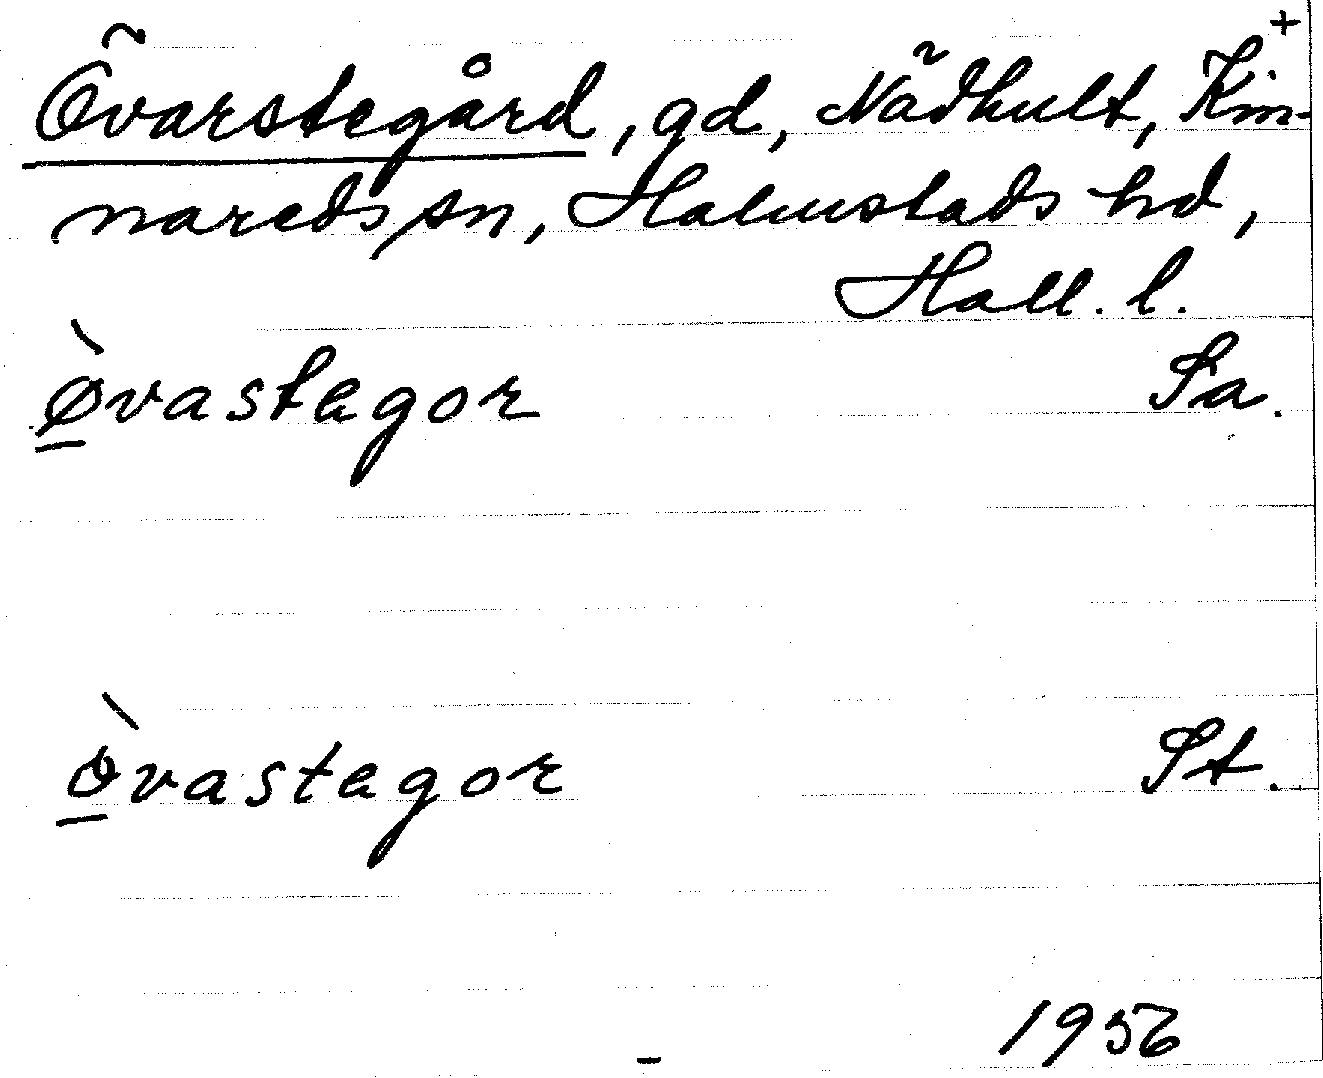 +
Övarstegård, gd, Nädhult, Kin-
nareds sn, Halmstads hd,
Hall. l.
ø̀vastagor Sa.
ö̀vastagor St.
1956